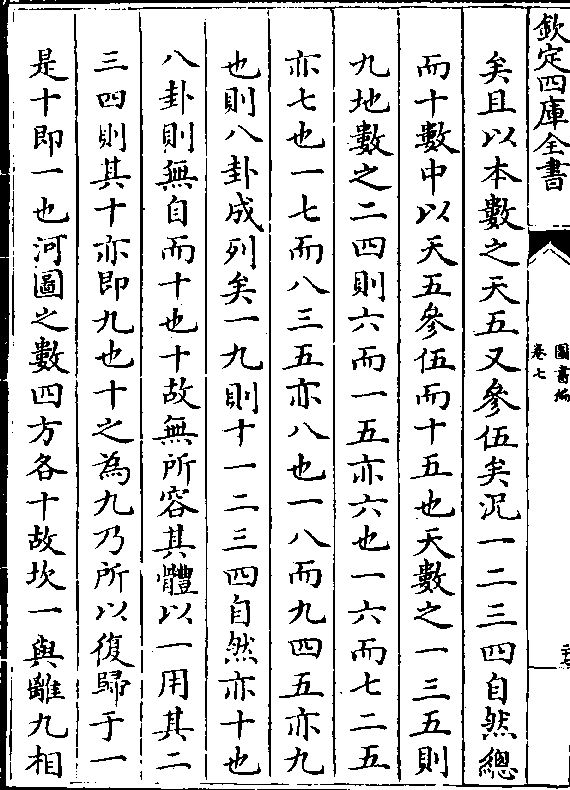 欽定四庫全書
圖書編
卷七
矣且以本數之天五又參伍矣況一二三四自然總
而十數中以天五參伍而十五也天數之一三五則
九地數之二四則六而一五亦六也一六而七二五
亦七也一七而八三五亦八也一八而九四五亦九
也則八卦成列矣一九則十一二三四自然亦十也
八卦則無自而十也十故無所容其體以一用其二
三四則其十亦即九也十之為九乃所以復歸于一
是十即一也河圖之數四方各十故坎一與離九相